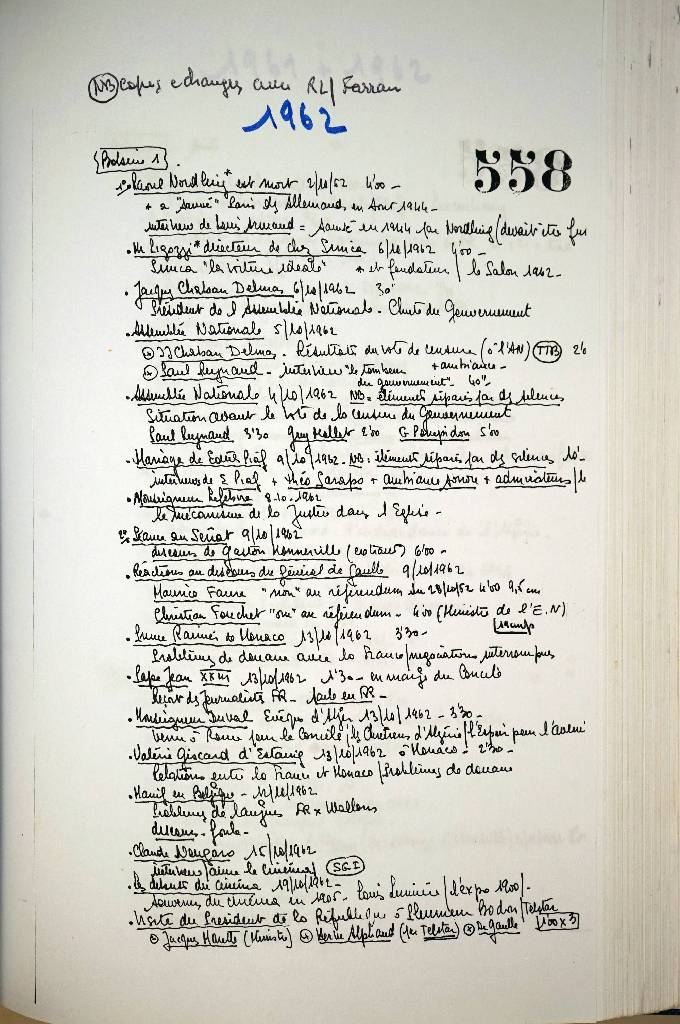 NB copies echanges avec RL/Farran
1962
Bobine 1
558
1° Raoul Nordling* est mort 2/10/62 4'00 -
* a "sauvé" Paris des Allemands en Aout 1944 -
interview de Louis Armand = sauvé en 1944 par Nordling (devait être fus
. Mr Pigozzi* directeur de chez Simca 6/10/1962 4'00 -
Simca "la voiture idéale" * et fondateur / le Salon 1962 -
. Jacques Chaban Delmas 6/10/1962 30"
Président de l'Assemblée Nationale - Chute du Gouvernement
. Assemblée Nationale 5/10/1962
JJ Chaban Delmas - Résultats du vote de censure (à l'AN) TTB 2'0
Paul Reynaud - interview "le tombeur + ambiance -
du gouvernement" - 40" -
. Assemblée Nationale 4/10/1962 NB = éléments séparés par des silences
Situation avant le vote de la censure du Gouvernement
Paul Reynaud 3'30 Guy Mollet 2'00 G Pompidou 5'00
. Mariage de Edith Piaf 9/10/1962 - NB : éléments séparés par des silences 10' -
interviews de E Piaf + Théo Sarapo + ambiance sonore + admirateurs / le
. Monseigneur Lefebvre 8.10.1962
le mécanisme de la Justice dans l'Eglise -
2° Séance au Sénat 9/10/1962
discours de Gaston Monnerville (extraits) 6'00 -
. Réactions au discours du Général de Gaulle 9/10/1962
Maurice Faure "non" au référendum du 28/10/62 4'00 9,5 cm
Christian Fouchet "oui" au référendum - 4'00 (Ministre de l'E.N)
19 cm/s
. Prince Rainier de Monaco 13/10/1962 3'30 -
Problèmes de douane avec la France / négociations interrompues
. Pape Jean XXIII 13/10/1962 1'30 - en marge du Concile
Reçoit des Journalistes FR - parle en FR -
. Monseigneur Duval Evêque d'Alger 13/10/1962 - 3'30 -
Venu à Rome pour le Concile / les Chrétiens d'Algérie / l'Espoir pour l'avenir
. Valérie Giscard d'Estaing 13/10/1962 à Monaco - 2'30 -
Relations entre la France et Monaco / Problèmes de douane
. Manif en Belgique - 14/10/1962
Problèmes de langues FR x Wallons
discours - foule -
. Claude Nougaro 15/10/1962
interview / aime le cinéma / SGI
. Les débuts du cinéma 19/10/1962 -
Souvenirs du cinéma en 1905 - Louis Lumière / l'expo 1900 / -
. Visite du Président de la République à Pleumeur Bodou / Telstar
Jacques Marette (Ministre) Hervé Alphand (par Telstar) De Gaulle 1'00 x 3